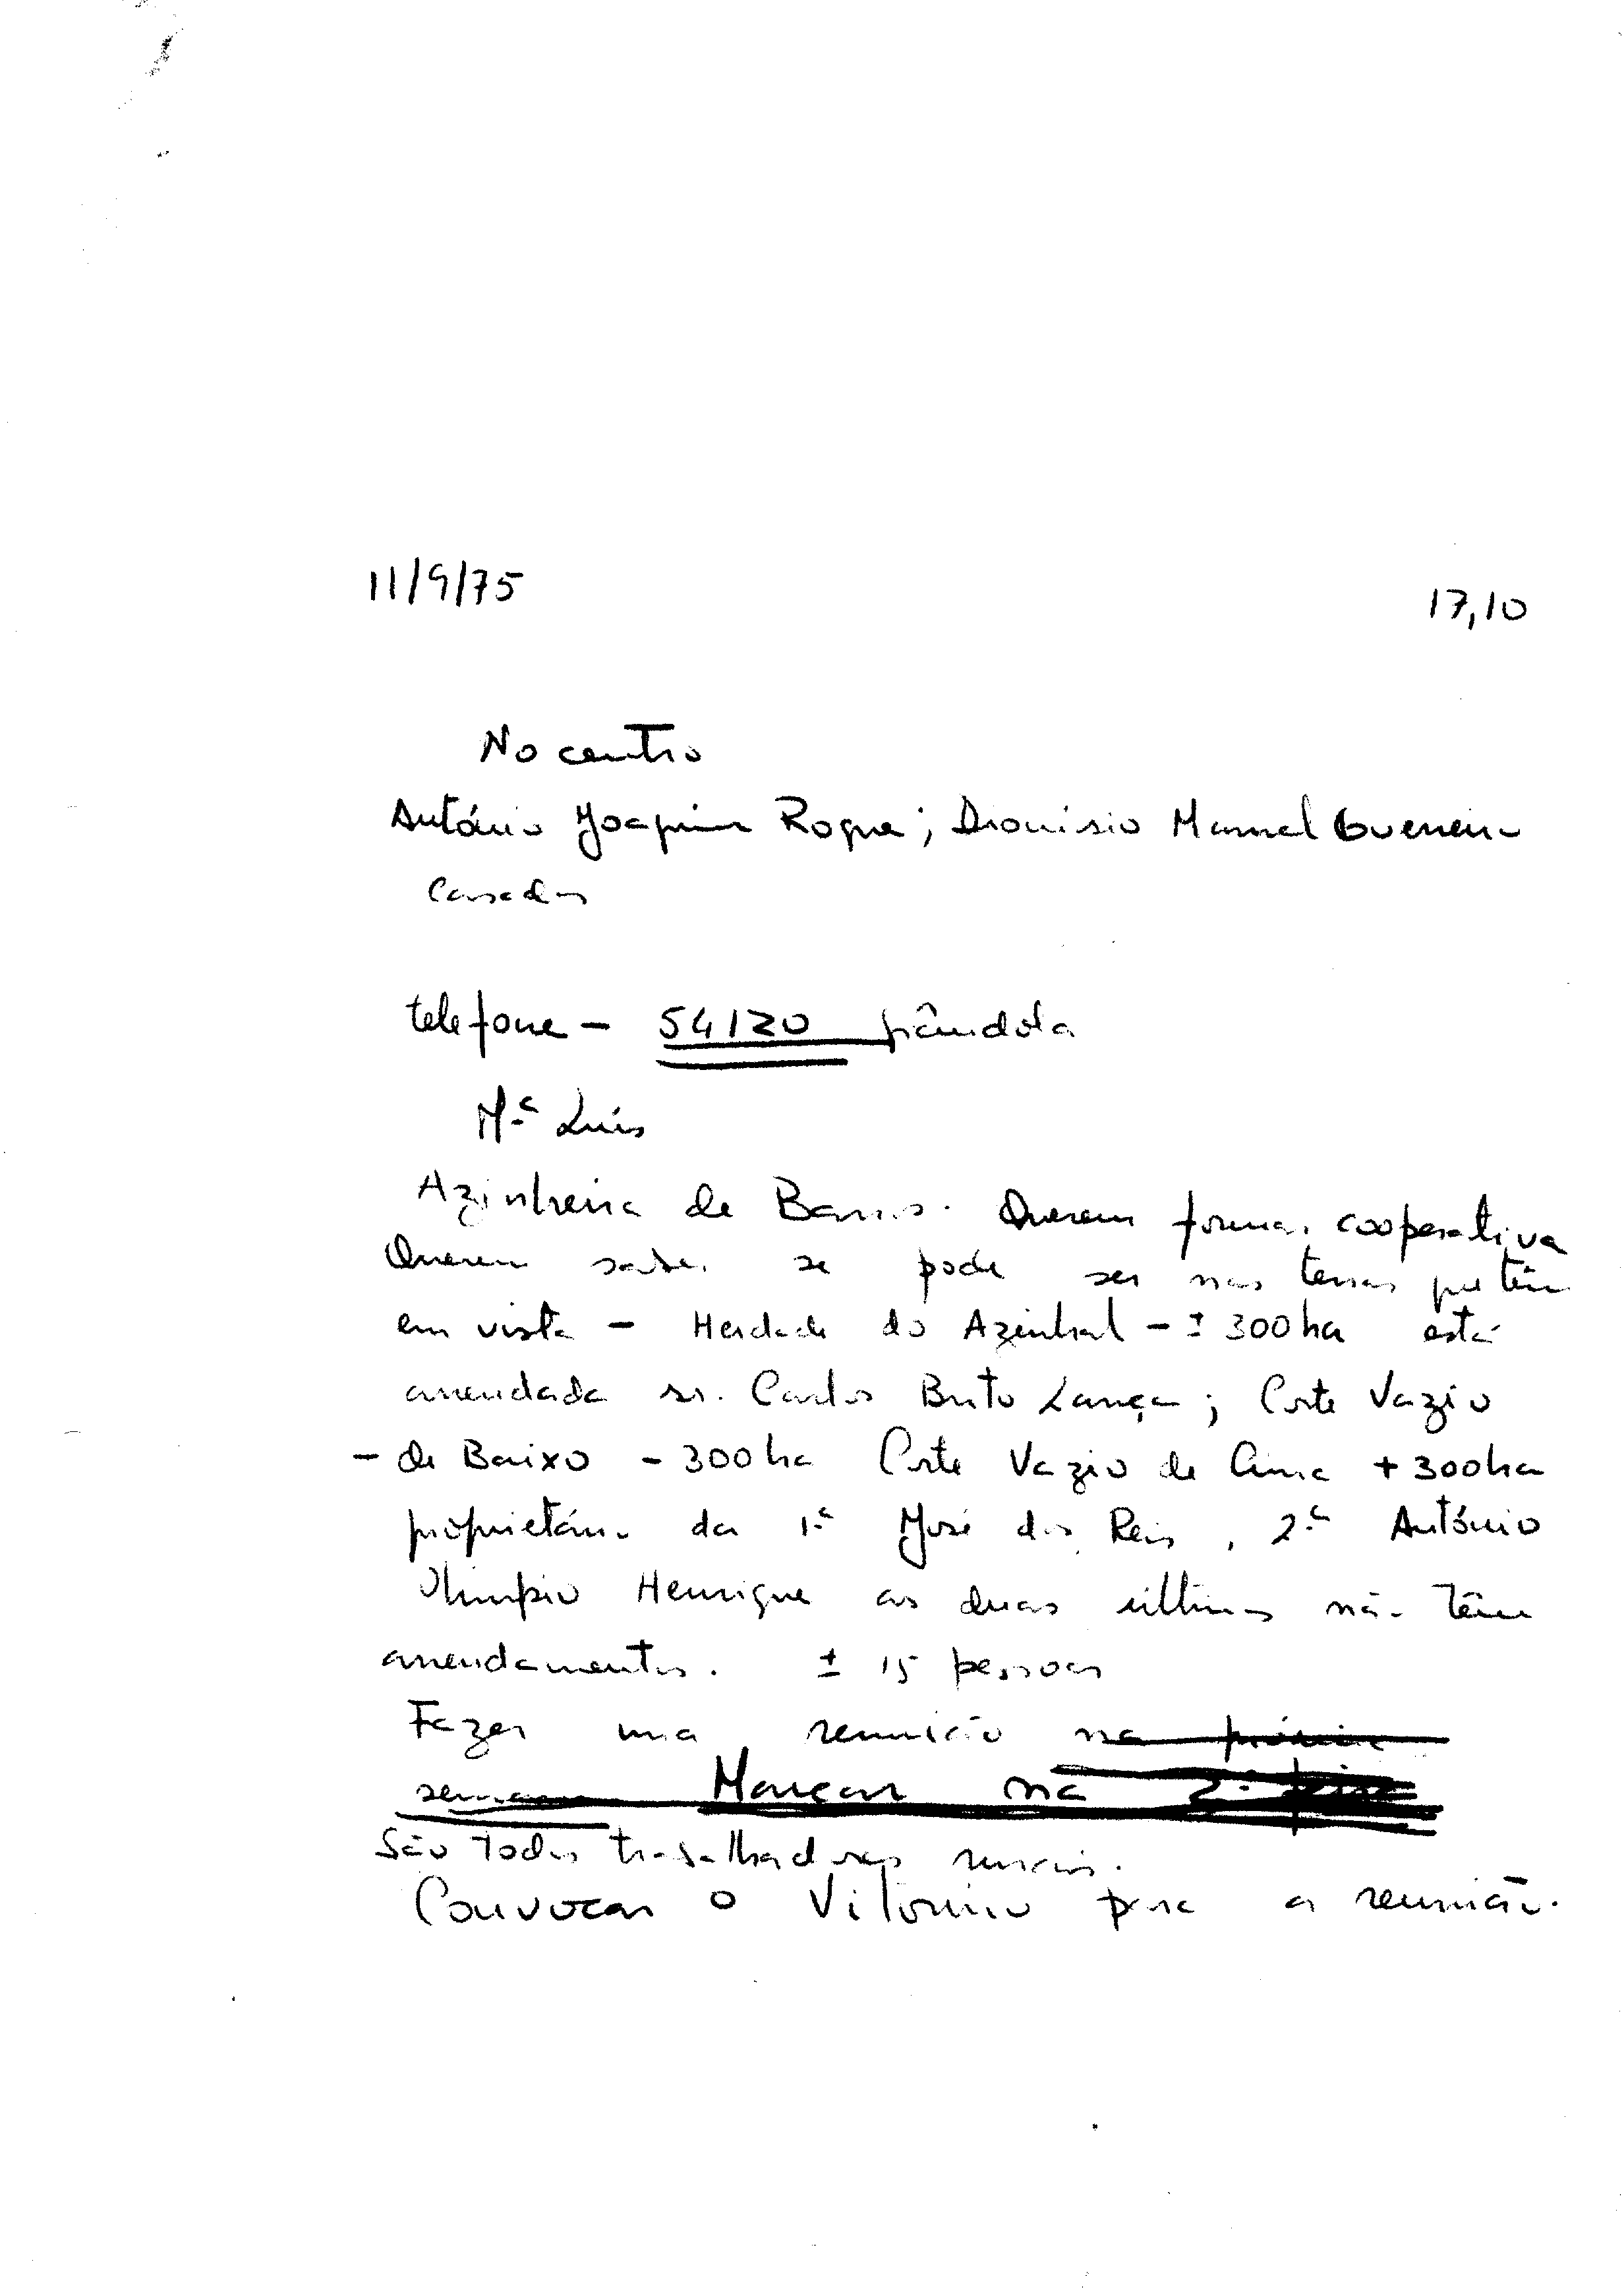 11/9/75
17,10
No centro
António Joaquim Roque; Dionísio Manuel Guerreiro
Casados
telefone - 54120 Grândola
Mª Luís
Azinheira de Barros. Querem formar cooperativa
Querem saber se pode ser nas terras que têm
em vista - Herdade do Azinhal - ± 300 ha está
arrendada sr. Carlos Brito Lança; Corte Vazio
- de Baixo - 300 ha Corte Vazio de Cima + 300 ha
proprietário da 1ª José dos Reis, 2ª António
Olímpio Henrique as duas últimas não têm
arrendamentos. ± 15 pessoas
Fazer uma reunião na próxima
semana Marcar na 2ª feira
São todos trabalhadores rurais.
Convocar o Vitorino para a reunião.